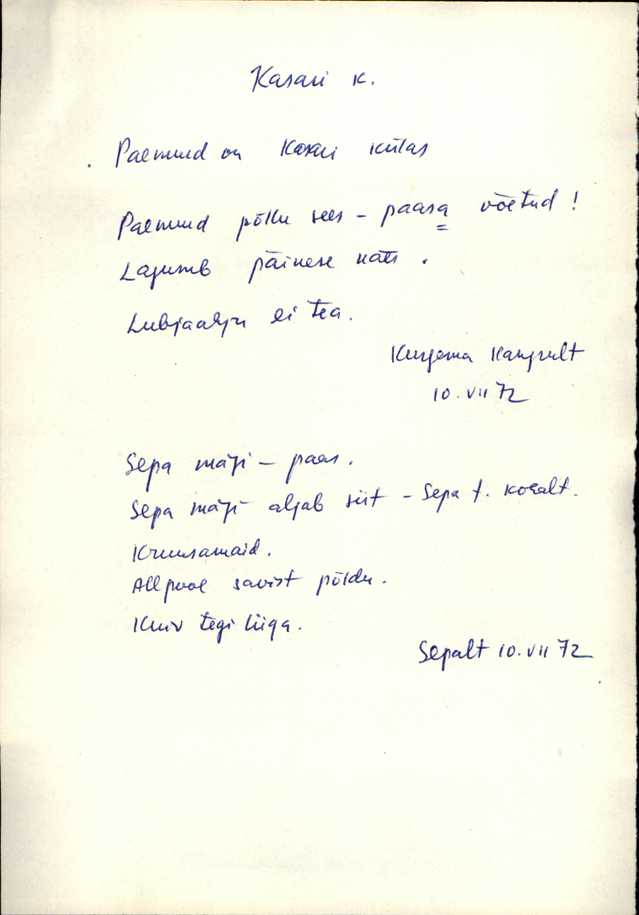 Kasari k.
Paemurd on Kasari külas
Paemurd põllu sees - paasa võetud!
Lagunud päinese
Lubjaahju ei tea.
Kurgema
10. VII 72
Sepa mägi - paas.
Sepa mägi algab siit - Sepa t. kohalt.
Kruusamaid.
Allpool savist põldu.
Kuiv tegi liiga.
Sepalt 10. VII 72